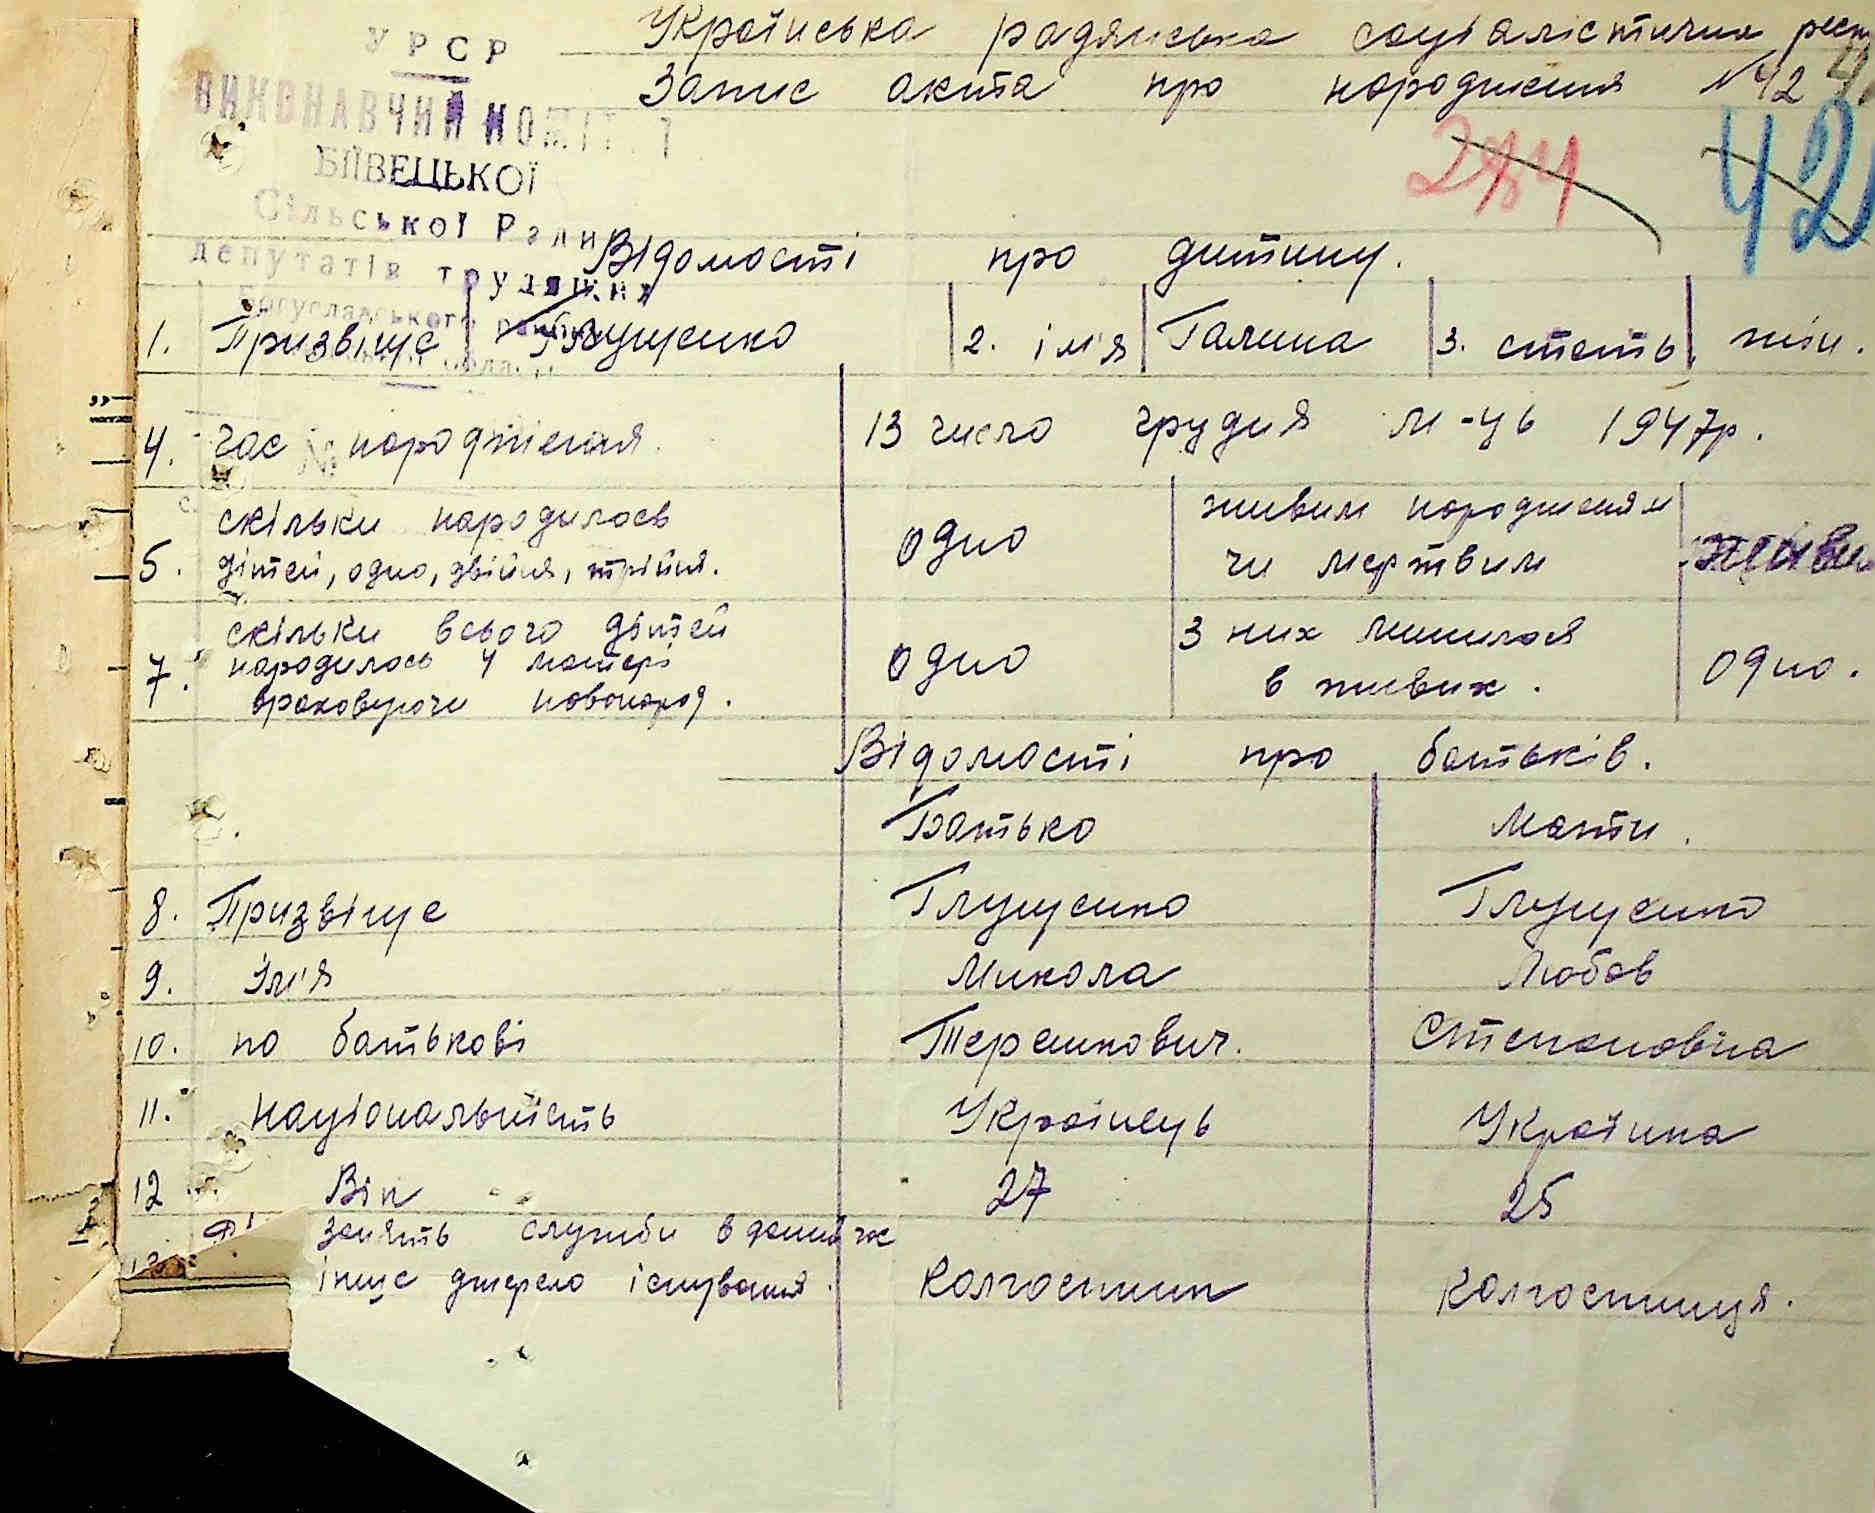 Українська радянська соціалістична респ
Запис акта про народження №42
УРСР
ВИКОНАВЧИЙ КОМІТЕТ
БІЇВЕЦЬКОЇ
Сільської Ради
депутатів трудящих
Богуславського району
284 42
Відомості про дитину.
1. Призвіще Глущенко 2. ім'я Галина 3. стать жін.
4. час народження. 13 число грудня м-ць 1947р.
5. скільки народилось дітей, одно, двійня, трійня. одно живим народженям чи мертвим живим
7. скільки всього дітей народилось у матері враховуючи новонарод. одно З них лишилося в живих. одно.
Відомості про батьків.
Батько Мати.
8. Призвіще Глущенко Глущенко
9. Ім'я Микола Любов
10. по батькові Терешкович. Степановна
11. Національність Українець Українка
12 Вік 27 25
занять служби в даний ж
інще джерело існування. Колгоспник Колгоспниця.